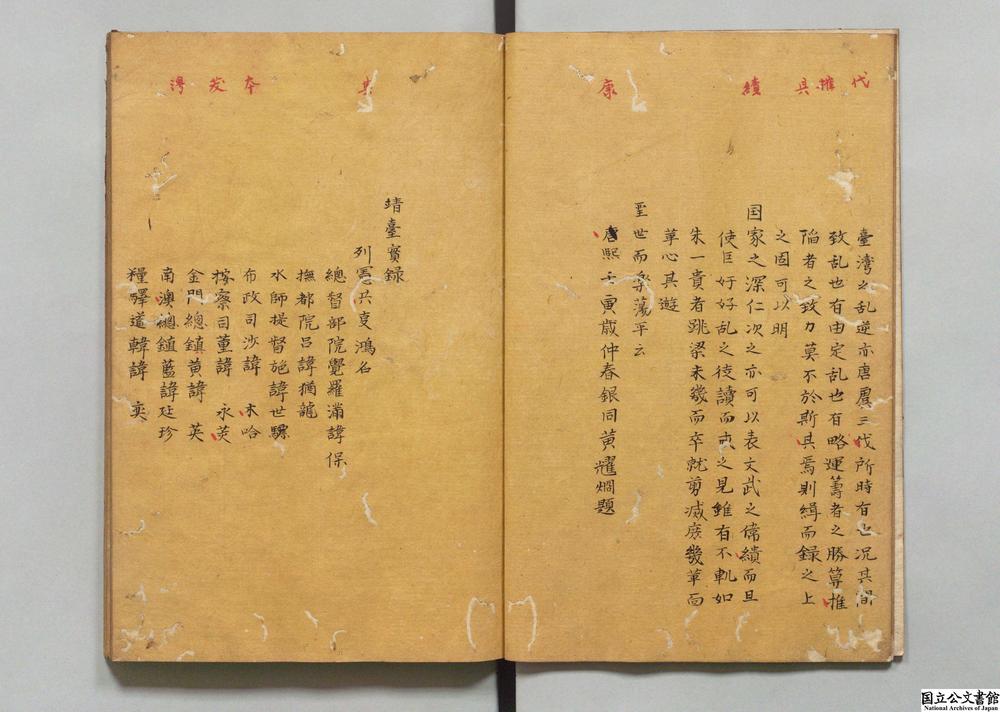 代 推 具 續 康
臺灣之乱逆亦唐虞三代所時有之况其間
致乱也有由定乱也有略運籌者之勝算推
陷者之致力莫不於斯具焉則緝而録之上
之固可以明
国家之深仁次之亦可以表文武之偉績而且
使巨奸好乱之徒讀而戒之見雖有不軌如
朱一貴者跳梁未幾而卒就剪滅庶幾革面
革心其遊
聖世而樂蕩平云
康熙壬寅歲仲春銀同黄耀烱題
共 本 炎 得
靖臺實録
列憲共事鴻名
總督部院覺羅滿諱保
撫都院吕諱猶龍
水師提督施諱世驃
布政司沙諱 木哈
按察司董諱 永芠
金門總鎮黄諱 英
南澳總鎮藍諱廷珍
糧驛道韓諱 奕
国立公文書館
National Archives of Japan